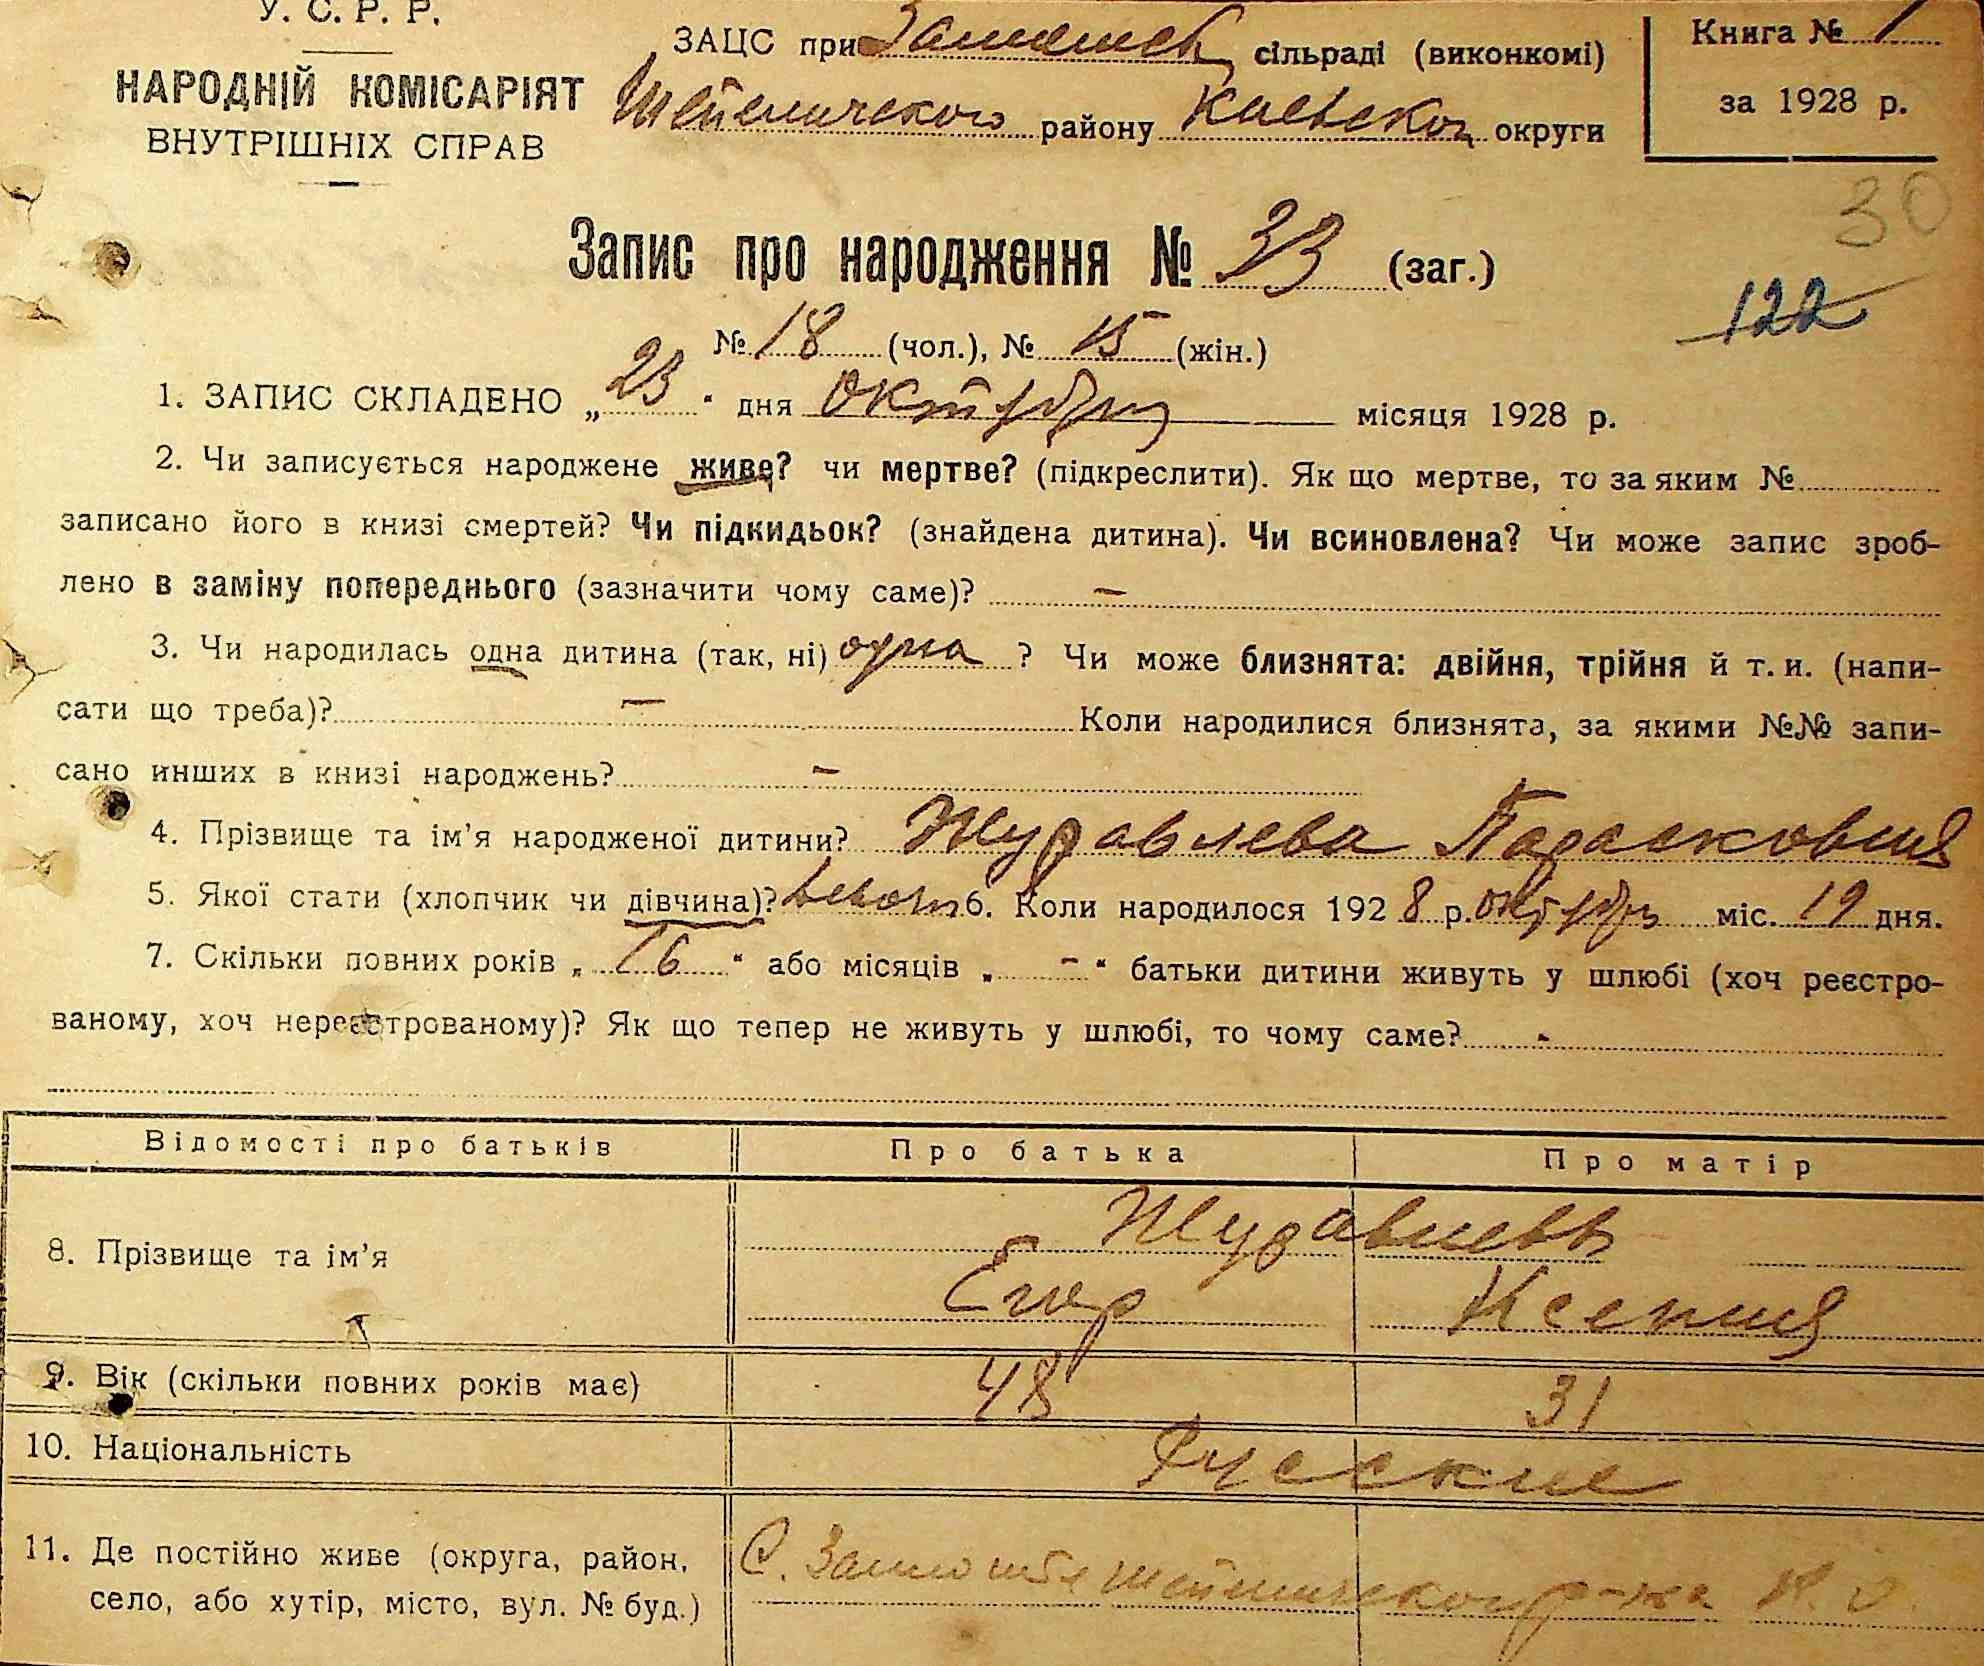 У. С. Р. Р.
НАРОДНІЙ КОМІСАРІЯТ
ВНУТРІШНІХ СПРАВ
ЗАЦС при сільраді (виконкомі)
району Киевской округи
Книга № 1
за 1928 р.
30
Запис про народження № 33 (заг.)
122
№ 18 (чол.), № 15 (жін.)
1. ЗАПИС СКЛАДЕНО „23“ дня октября місяця 1928 р.
2. Чи записується народжене живе? чи мертве? (підкреслити). Як що мертве, то за яким №
записано його в книзі смертей? Чи підкидьок? (знайдена дитина). Чи всиновлена? Чи може запис зроб-
лено в заміну попереднього (зазначити чому саме)? —
3. Чи народилась одна дитина (так, ні) одна ? Чи може близнята: двійня, трійня й т. и. (напи-
сати що треба)? — Коли народилися близнята, за якими №№ запи-
сано инших в книзі народжень? —
4. Прізвище та ім’я народженої дитини? Журавлева Парасковия
5. Якої стати (хлопчик чи дівчина)? 6. Коли народилося 1928 р. октября міс. 19 дня.
7. Скільки повних років „16“ або місяців „-“ батьки дитини живуть у шлюбі (хоч реєстро-
ваному, хоч нереєстрованому)? Як що тепер не живуть у шлюбі, то чому саме? -
Відомості про батьків Про батька Про матір
8. Прізвище та ім’я Журавлевы
Егор Ксения
9. Вік (скільки повних років має) 48 31
10. Національність Русские
11. Де постійно живе (округа, район,
село, або хутір, місто, вул. № буд.)
С. р-на К. О.